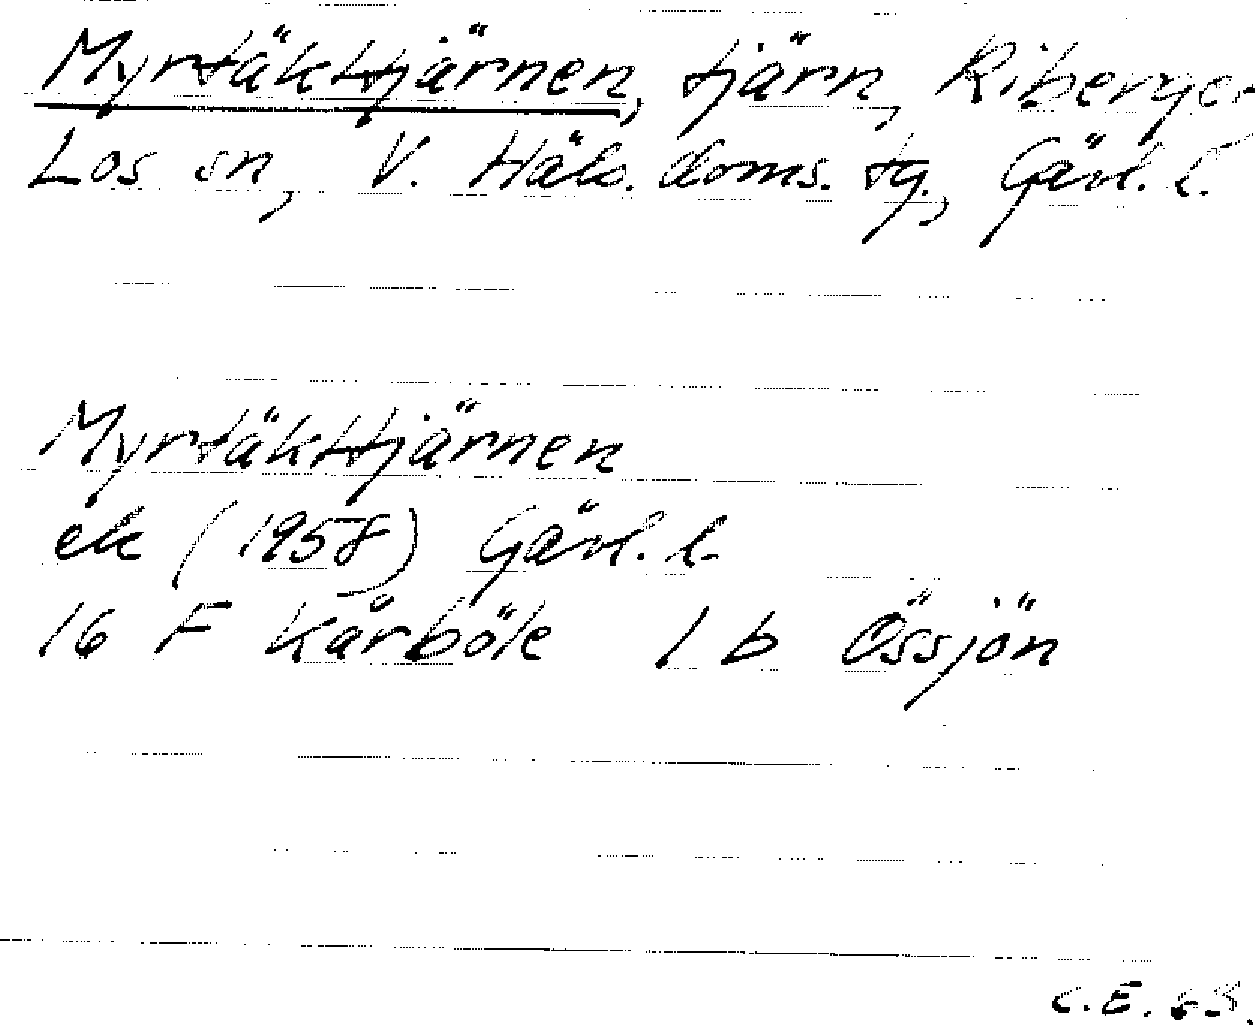 Myrtäkttjärnen, tjärn, Riberget
Los sn, V. Häls. doms. tg., Gävl. l.
Myrtäkttjärnen
ek (1958) Gävl. l.
16 F Kårböle 1 b Össjön
C.E.